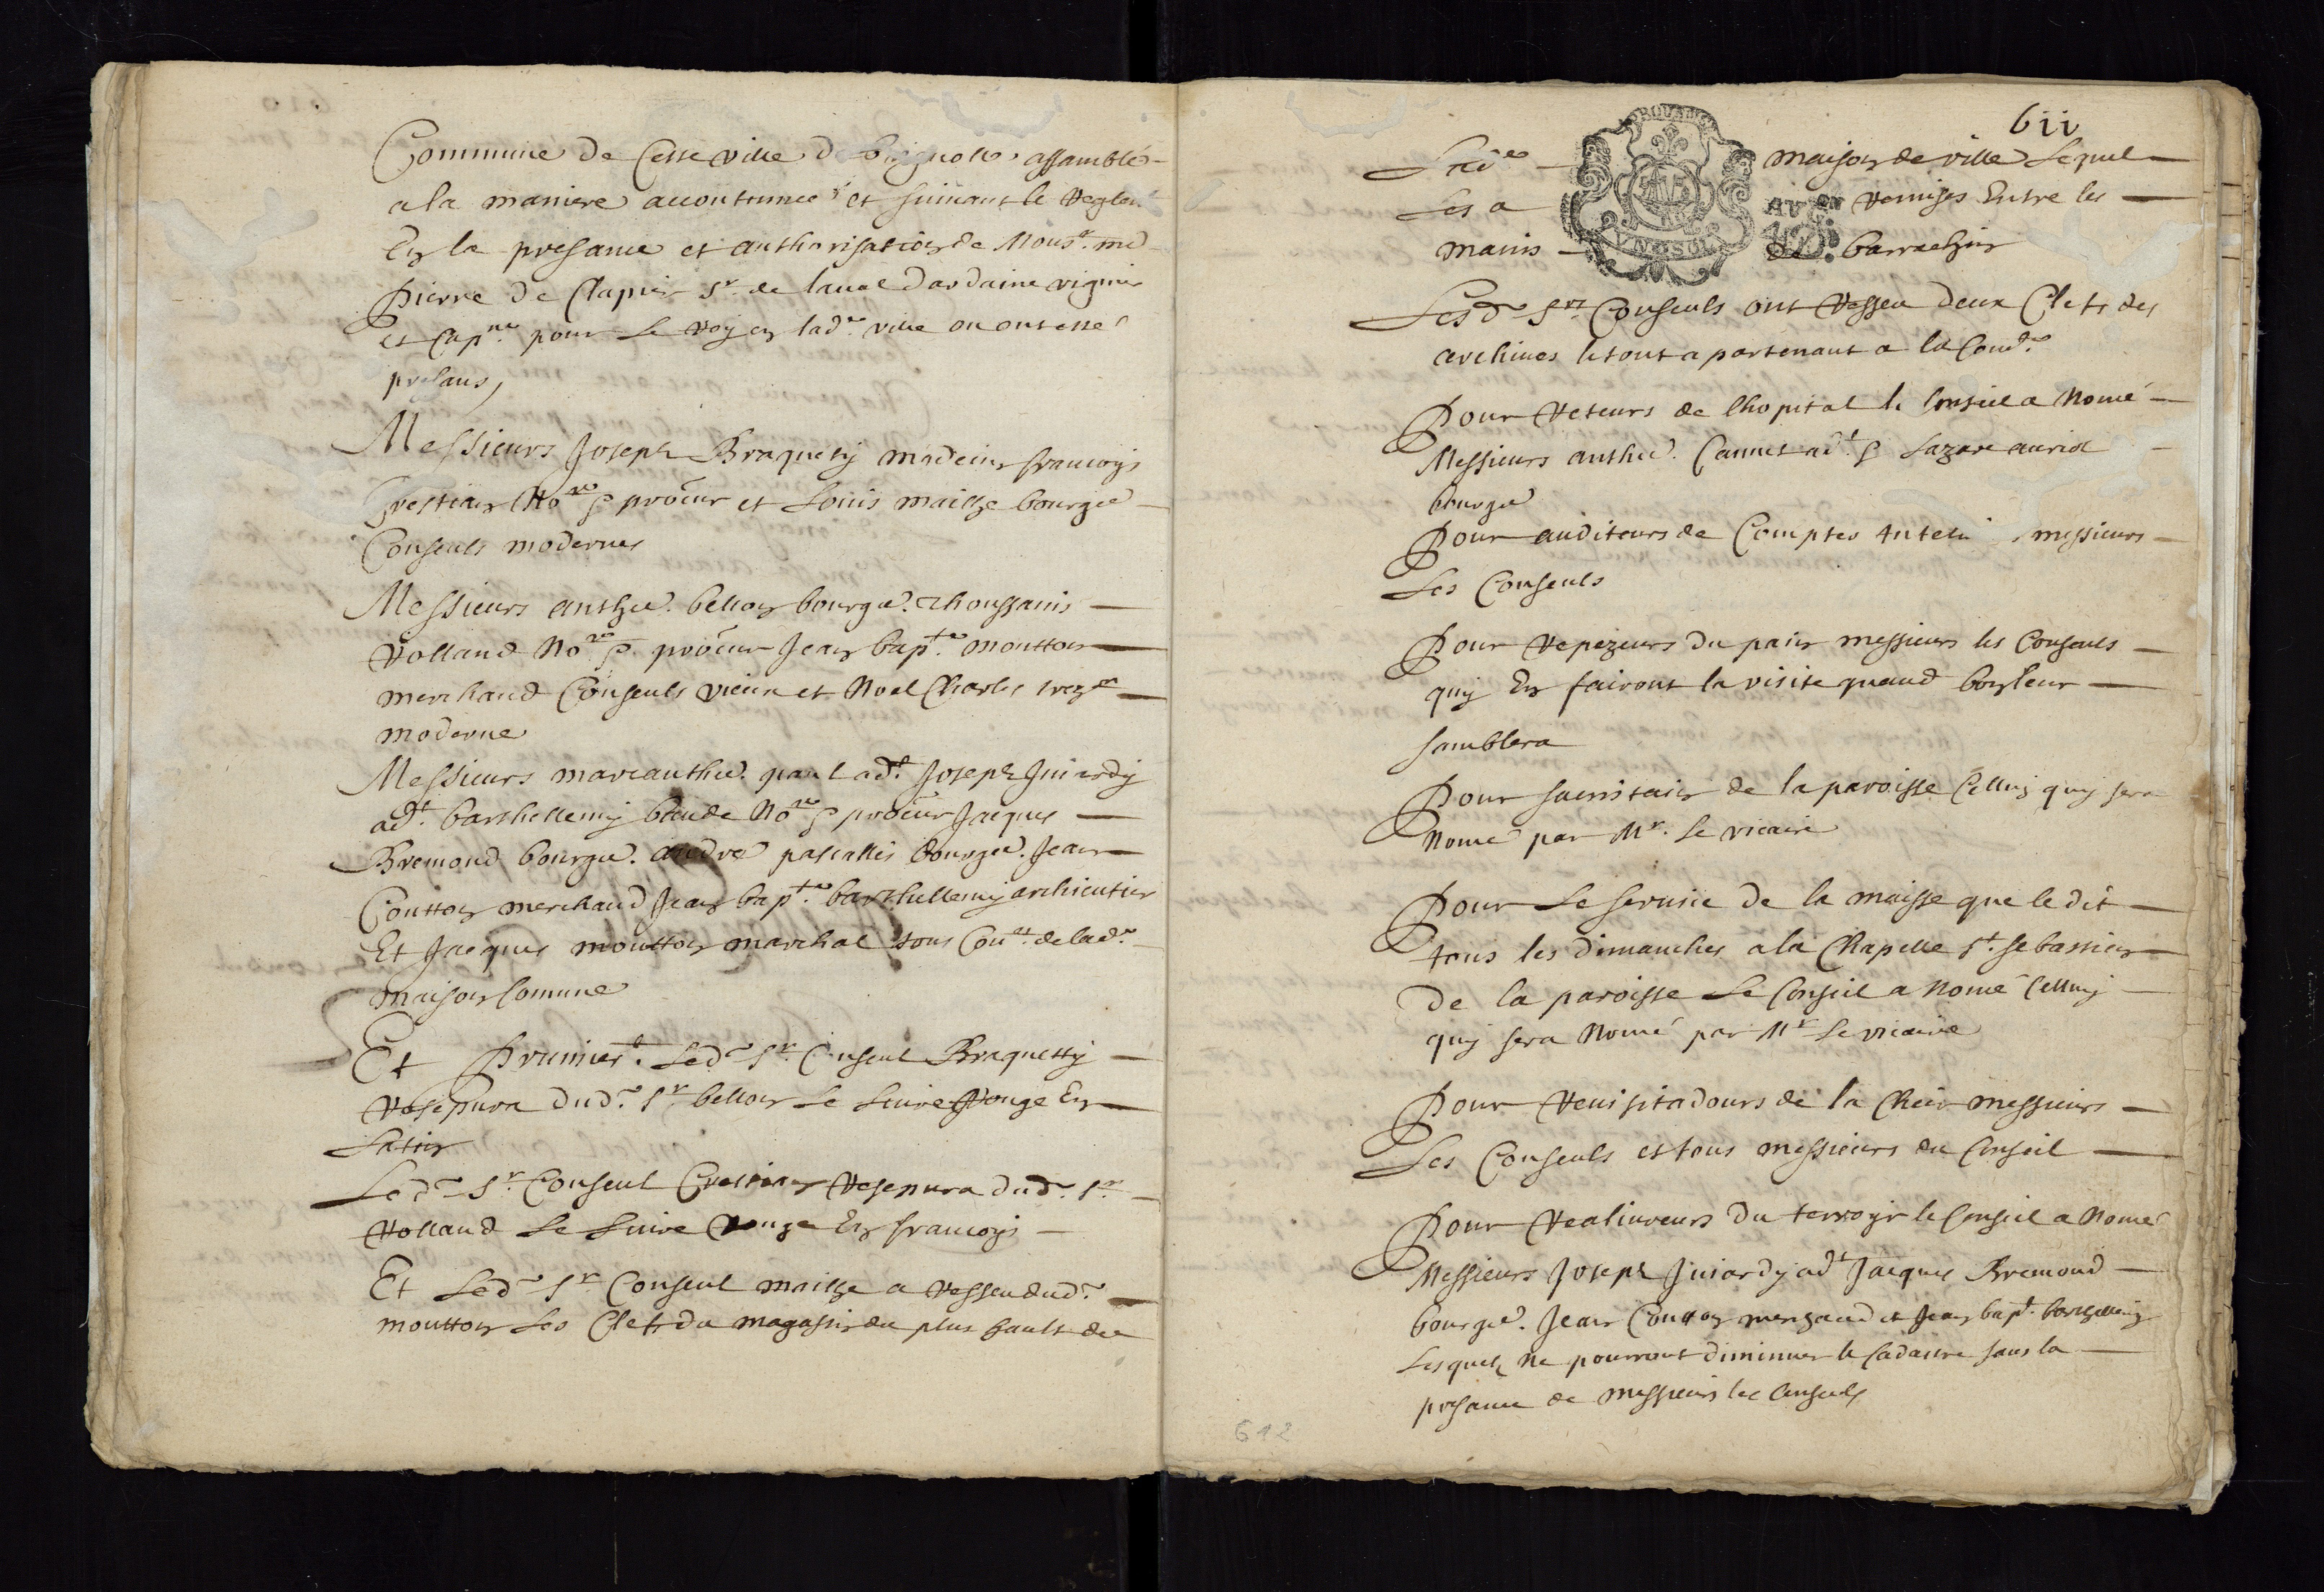 Commune de Ceste ville de brignolle assamblé
a la maniere accoutumee et suiuant le Reglem.t
En la presance et authorisation de Mous.r me
Pierre de Clapier s.r de laual dardaine viguier
et Cap.ne pour Le Roy en lad.e ville ou ont esté
presans,
Messieurs Joseph Braquety medecin francoys
Crestian No.re & proĉur et Louis maille bourgs
Conseuls modernes
Messieurs anthe. bellon bourgs. honssanis
Rolland No.re & proĉur Jean bap.te moutton
merchand Conseuls vieux et Noel Charles trez.er
moderne
Messieurs marcanthe. paul ad.t Joseph Juiardy
ad.t barthellemy baude No.re & proĉur Jacques
Bremond bourgs. andre pascallis bourgs. Jean
Coutton merchand Jean bap.te barthellemy
Et Jacques moutton marchal tous Con.rs de lad.e
maison Comune
Et Premier.t Led.t s.r Conseul Braquetty
Resepura dud.t s.r bellon Le Liure Rouge En
Latin
Led.t s.r Conseul Crestian Resepura dud.t s.r
Rolland Le Liure Rouge En francoys
Et Led.t s.r Conseul maille a Resseu dud.t
moutton Les Clefs du magassin du plus hault de
611
Lad.e maison de ville Lequel
Les a Remises Entre les
mains de barralhier
Lesd.ts s.rs Conseuls ont Resseu deux Clefs des
archiues le tout apartenant a la Com.té
Pour Reteurs de lhopital le Conseil a Nomé
Messieurs anthe. Cannet ad.t & Lazare auriol
bourgs
Pour auditeurs de Comptes messieurs
Les Conseuls
Pour Repezeurs du pain messieurs les Conseuls
quy En fairont la visite quand bon leur
samblera
Pour sacristain de la paroisse Celluy quy sera
Nomé par M.r le vicaire
Pour Le seruice de la maisse que le dit
tous les dimanches a la Chapelle s.t sebastien
de la paroisse Le Conseil a Nomé Celluy
quy sera Nomé par M.r Le vicaire
Pour Reuisitadours de la Cher messieurs
Les Conseuls et tous messieurs du Conseil
Pour Realiureurs du terroyr le Conseil a Nomé
Messieurs Joseph Juiardy ad.t Jacques Bremond
bourgs. Jean Coutton merchand et Jean bap.te barthellemy
Lesquels ne pourront diminuer le Cadastre sans la
presance de messieurs les Conseuls
612